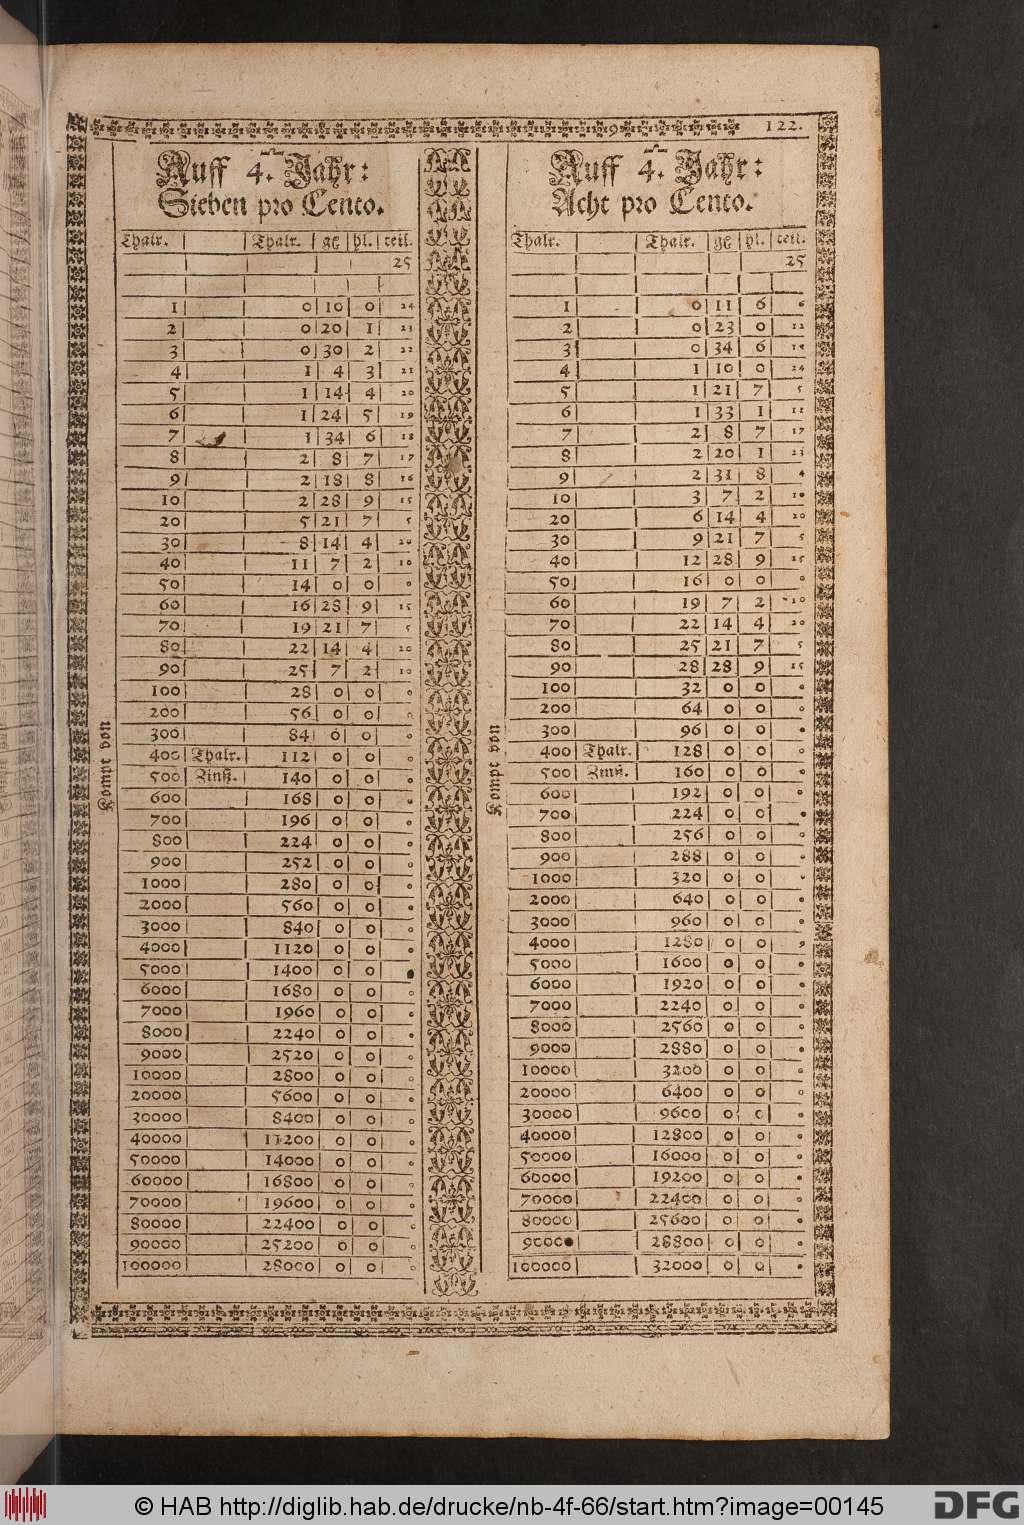 122.
Auff 4. Jahr:
Sieben pro Cento.
Thalr. Thalr. gℓ hl. teil.
25
1 0 10 0 24
2 0 20 1 23
3 0 30 2 22
4 1 4 3 21
5 1 14 4 20
6 1 24 5 19
7 1 34 6 18
8 2 8 7 17
9 2 18 8 16
10 2 28 9 15
20 5 21 7 5
30 8 14 4 20
40 11 7 2 10
50 14 0 0 0
60 16 28 9 15
70 19 21 7 5
80 22 14 4 20
90 25 7 2 10
100 28 0 0 0
200 56 0 0 0
300 84 0 0 0
400 Thalr. 112 0 0 0
500 Zinß. 140 0 0 0
600 168 0 0 0
700 196 0 0 0
800 224 0 0 0
900 252 0 0 0
1000 280 0 0 0
2000 560 0 0 0
3000 840 0 0 0
4000 1120 0 0 0
5000 1400 0 0 0
6000 1680 0 0 0
7000 1960 0 0 0
8000 2240 0 0 0
9000 2520 0 0 0
10000 2800 0 0 0
20000 5600 0 0 0
30000 8400 0 0 0
40000 11200 0 0 0
50000 14000 0 0 0
60000 16800 0 0 0
70000 19600 0 0 0
80000 22400 0 0 0
90000 25200 0 0 0
100000 28000 0 0 0
Kompt von
Auff 4. Jahr:
Acht pro Cento.
Thalr. Thalr. gℓ hl. teil.
25
1 0 11 6 6
2 0 23 0 12
3 0 34 6 18
4 1 10 0 24
5 1 21 7 5
6 1 33 1 11
7 2 8 7 17
8 2 20 1 23
9 2 31 8 4
10 3 7 2 10
20 6 14 4 20
30 9 21 7 5
40 12 28 9 15
50 16 0 0 0
60 19 7 2 10
70 22 14 4 20
80 25 21 7 5
90 28 28 9 15
100 32 0 0 0
200 64 0 0 0
300 96 0 0 0
400 Thalr. 128 0 0 0
500 Zinß. 160 0 0 0
600 192 0 0 0
700 224 0 0 0
800 256 0 0 0
900 288 0 0 0
1000 320 0 0 0
2000 640 0 0 0
3000 960 0 0 0
4000 1280 0 0 0
5000 1600 0 0 0
6000 1920 0 0 0
7000 2240 0 0 0
8000 2560 0 0 0
9000 2880 0 0 0
10000 3200 0 0 0
20000 6400 0 0 0
30000 9600 0 0 0
40000 12800 0 0 0
50000 16000 0 0 0
60000 19200 0 0 0
70000 22400 0 0 0
80000 25600 0 0 0
90000 28800 0 0 0
100000 32000 0 0 0
Kompt von
© HAB http://diglib.hab.de/drucke/nb-4f-66/start.htm?image=00145
DFG